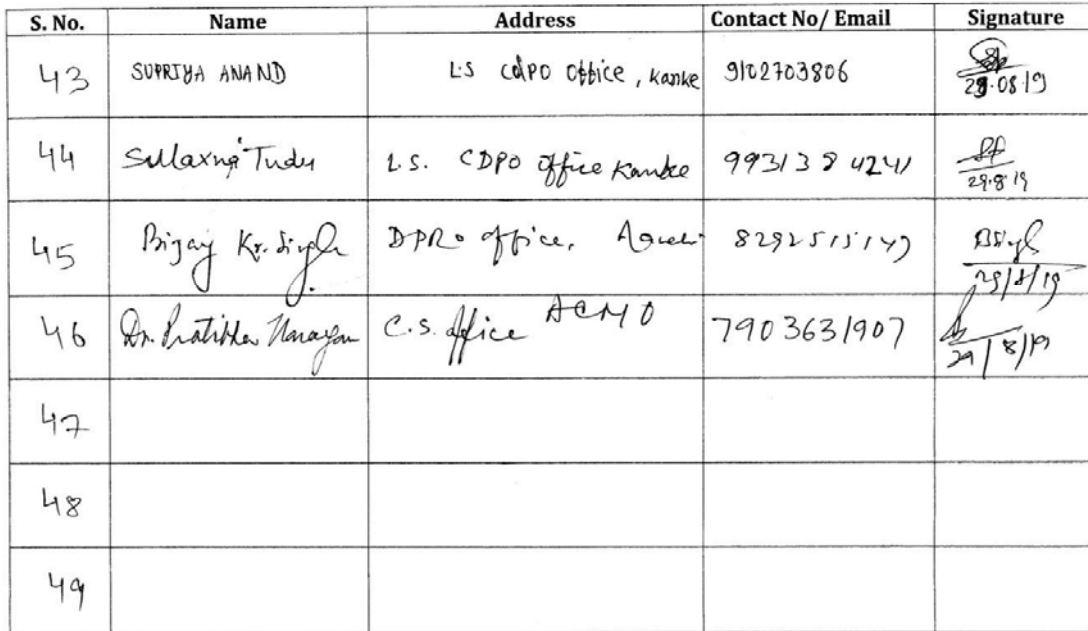 S. No. Name Address Contact No/ Email Signature
43 SUPRIYA ANAND L.S CDPO Office, Kanke 9102703806 29.08.19
44 Sullaxna Tudu L.S. CDPO Office Kanke 9931384241 29.8.19
45 Bijay Kr. Singh DPRO office, 8292515147 29/8/19
46 Dr. Pratibha Narayan C.S. Office ACMO 7903631907 29/8/19
47
48
49